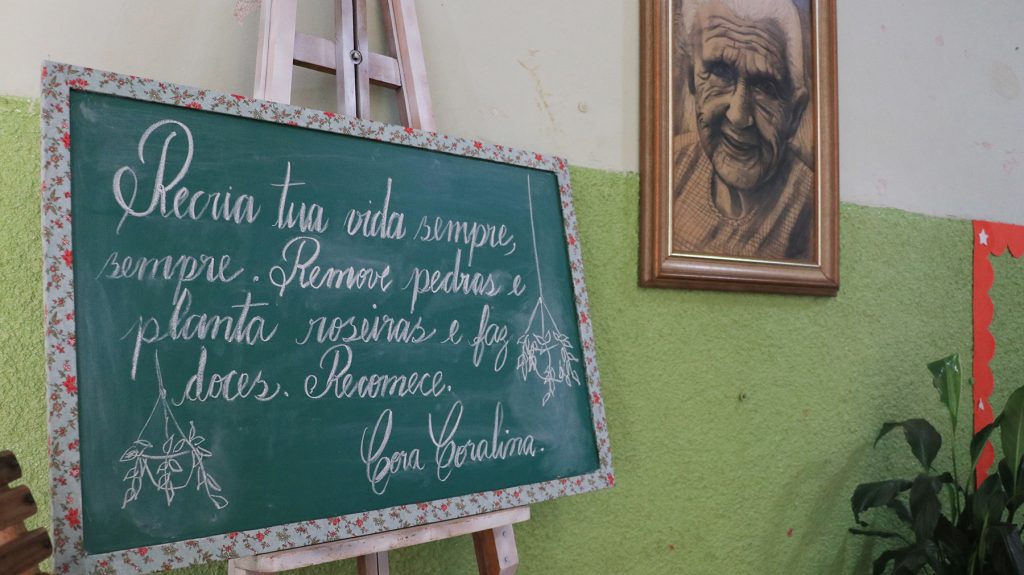 Recria tua vida sempre,
sempre. Remove pedras e
planta roseiras e faz
doces. Recomece.
Cora Coralina.